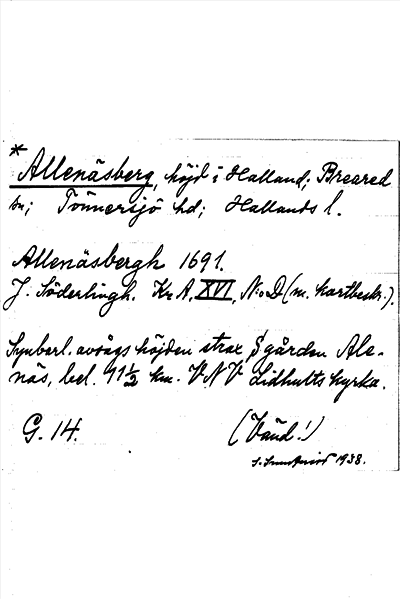 * Allenäsberg, höjd i Halland; Breared
sn; Tönnersjö hd; Hallands l.
Allenäsbergh 1691.
J. Söderlingh. Kr A, XVI, N:o D (m. kartbeskr.).
Synberl. avsågs höjden strax § gården Ale-
näs, bel. 11 1/2 km. VNV Lidhults kyrka.
G. 14.
(Vänd!)
1938.